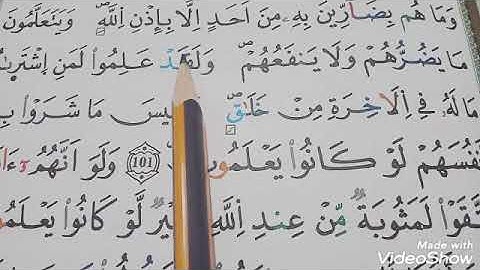 وَمَا هُم بِضَآرِّينَ بِهِۦ مِنَ اَحَدٍ اِلَّا بِإِذْنِ اِ۬للَّهِۖ وَيَتَعَلَّمُونَ
مَا يَضُرُّهُمْ وَلَا يَنفَعُهُمْۖ وَلَقَدْ عَلِمُواْ لَمَنِ
مَا لَهُۥ فِے اِ۬لَاخِرَةِ مِنْ خَلَٰقٖۖ مَا شَرَوْاْ
نفُسَهُمْ لَوْ كَانُواْ يَعْلَمُونَ 101 وَلَوَ اَنَّهُمُۥٓ
تَّقَوْاْ لَمَثُوبَةٞ مِّنْ عِندِ اِ۬للَّهِ لَّوْ كَانُواْ يَعْلَمُو
Made with
VideoShow